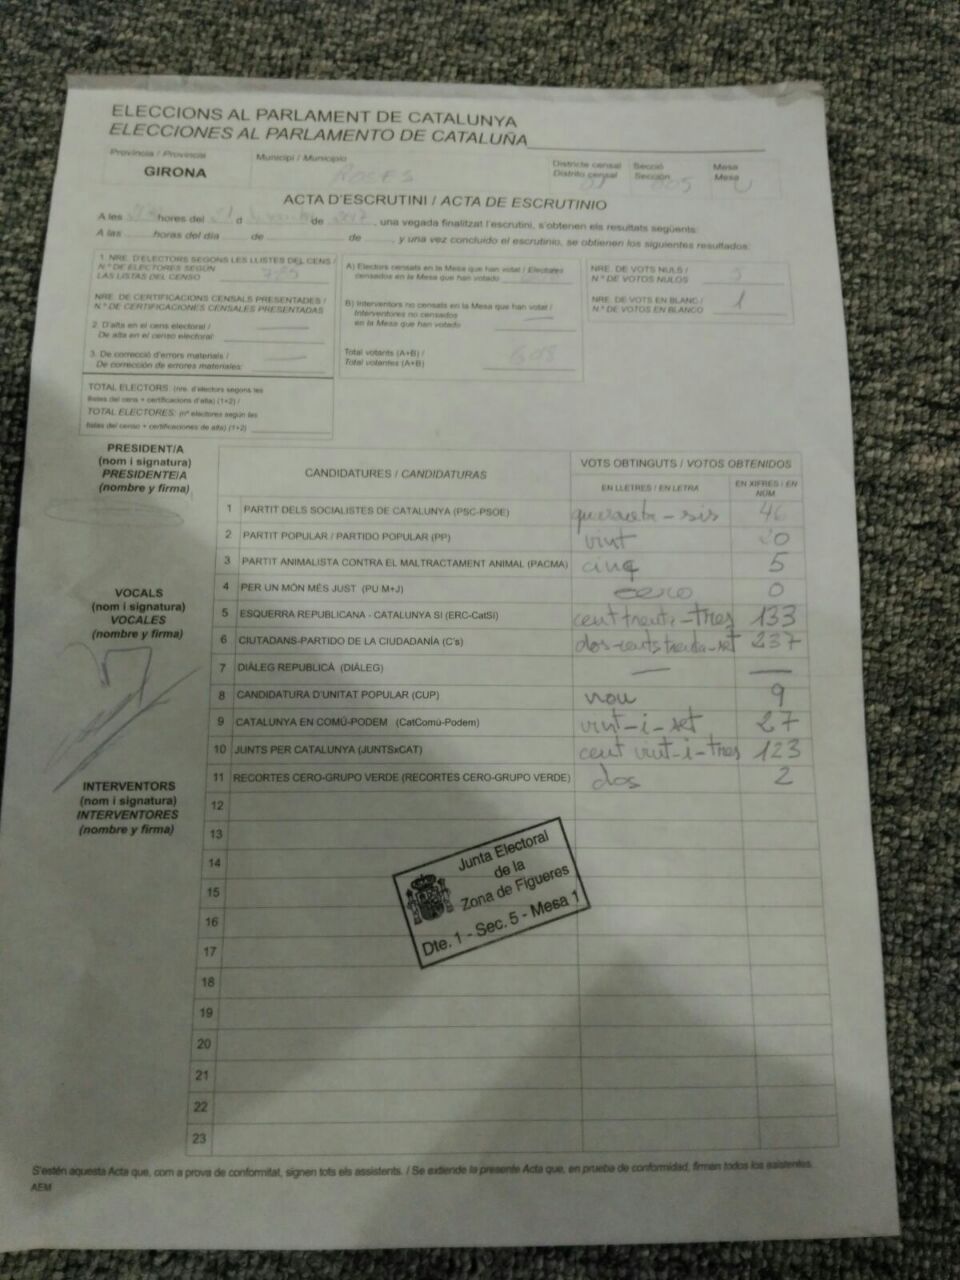 ELECCIONS AL PARLAMENT DE CATALUNYA
ELECCIONES AL PARLAMENTO DE CATALUÑA
Província / Provincia
GIRONA
Municipi / Municipio
ROSES
Districte censal
Distrito censal
01
Secció
Sección
005
Mesa
Mesa
U
ACTA D'ESCRUTINI / ACTA DE ESCRUTINIO
A les hores del 21 d de 2017, una vegada finalitzat l'escrutini, s'obtenen els resultats següents:
A las horas del día de de , y una vez concluido el escrutinio, se obtienen los siguientes resultados:
1. NRE. D'ELECTORS SEGONS LES LLISTES DEL CENS /
N.º DE ELECTORES SEGÚN
LAS LISTAS DEL CENSO
NRE. DE CERTIFICACIONS CENSALS PRESENTADES /
N.º DE CERTIFICACIONES CENSALES PRESENTADAS
2. D'alta en el cens electoral / —
De alta en el censo electoral:
3. De correcció d'errors materials / —
De corrección de errores materiales:
TOTAL ELECTORS: (nre. d'electors segons les
llistes del cens + certificacions d'alta) (1+2) /
TOTAL ELECTORES: (nº electores según las
listas del censo + certificaciones de alta) (1+2)
A) Electors censats en la Mesa que han votat / Electores
censados en la Mesa que han votado
B) Interventors no censats en la Mesa que han votat /
Interventores no censados —
en la Mesa que han votado
Total votants (A+B) /
Total votantes (A+B) 608
NRE. DE VOTS NULS /
N.º DE VOTOS NULOS 5
NRE. DE VOTS EN BLANC /
N.º DE VOTOS EN BLANCO 1
PRESIDENT/A
(nom i signatura)
PRESIDENTE/A
(nombre y firma)
VOCALS
(nom i signatura)
VOCALES
(nombre y firma)
INTERVENTORS
(nom i signatura)
INTERVENTORES
(nombre y firma)
CANDIDATURES / CANDIDATURAS
VOTS OBTINGUTS / VOTOS OBTENIDOS
EN LLETRES / EN LETRA
EN XIFRES / EN NÚM
1 PARTIT DELS SOCIALISTES DE CATALUNYA (PSC-PSOE) quaranta-sis 46
2 PARTIT POPULAR / PARTIDO POPULAR (PP) vint 20
3 PARTIT ANIMALISTA CONTRA EL MALTRACTAMENT ANIMAL (PACMA) cinq 5
4 PER UN MÓN MÉS JUST (PU M+J) cero 0
5 ESQUERRA REPUBLICANA - CATALUNYA SÍ (ERC-CatSí) cent trenta-tres 133
6 CIUTADANS-PARTIDO DE LA CIUDADANÍA (C's) dos-cents trenta-set 237
7 DIÀLEG REPUBLICÀ (DIÀLEG) — —
8 CANDIDATURA D'UNITAT POPULAR (CUP) nou 9
9 CATALUNYA EN COMÚ-PODEM (CatComú-Podem) vint-i-set 27
10 JUNTS PER CATALUNYA (JUNTSxCAT) cent vint-i-tres 123
11 RECORTES CERO-GRUPO VERDE (RECORTES CERO-GRUPO VERDE) dos 2
12
13
14
15
16
17
18
19
20
21
22
23
Junta Electoral
de la
Zona de Figueres
Dte. 1 - Sec. 5 - Mesa 1
S'estén aquesta Acta que, com a prova de conformitat, signen tots els assistents. / Se extiende la presente Acta que, en prueba de conformidad, firman todos los asistentes.
AEM